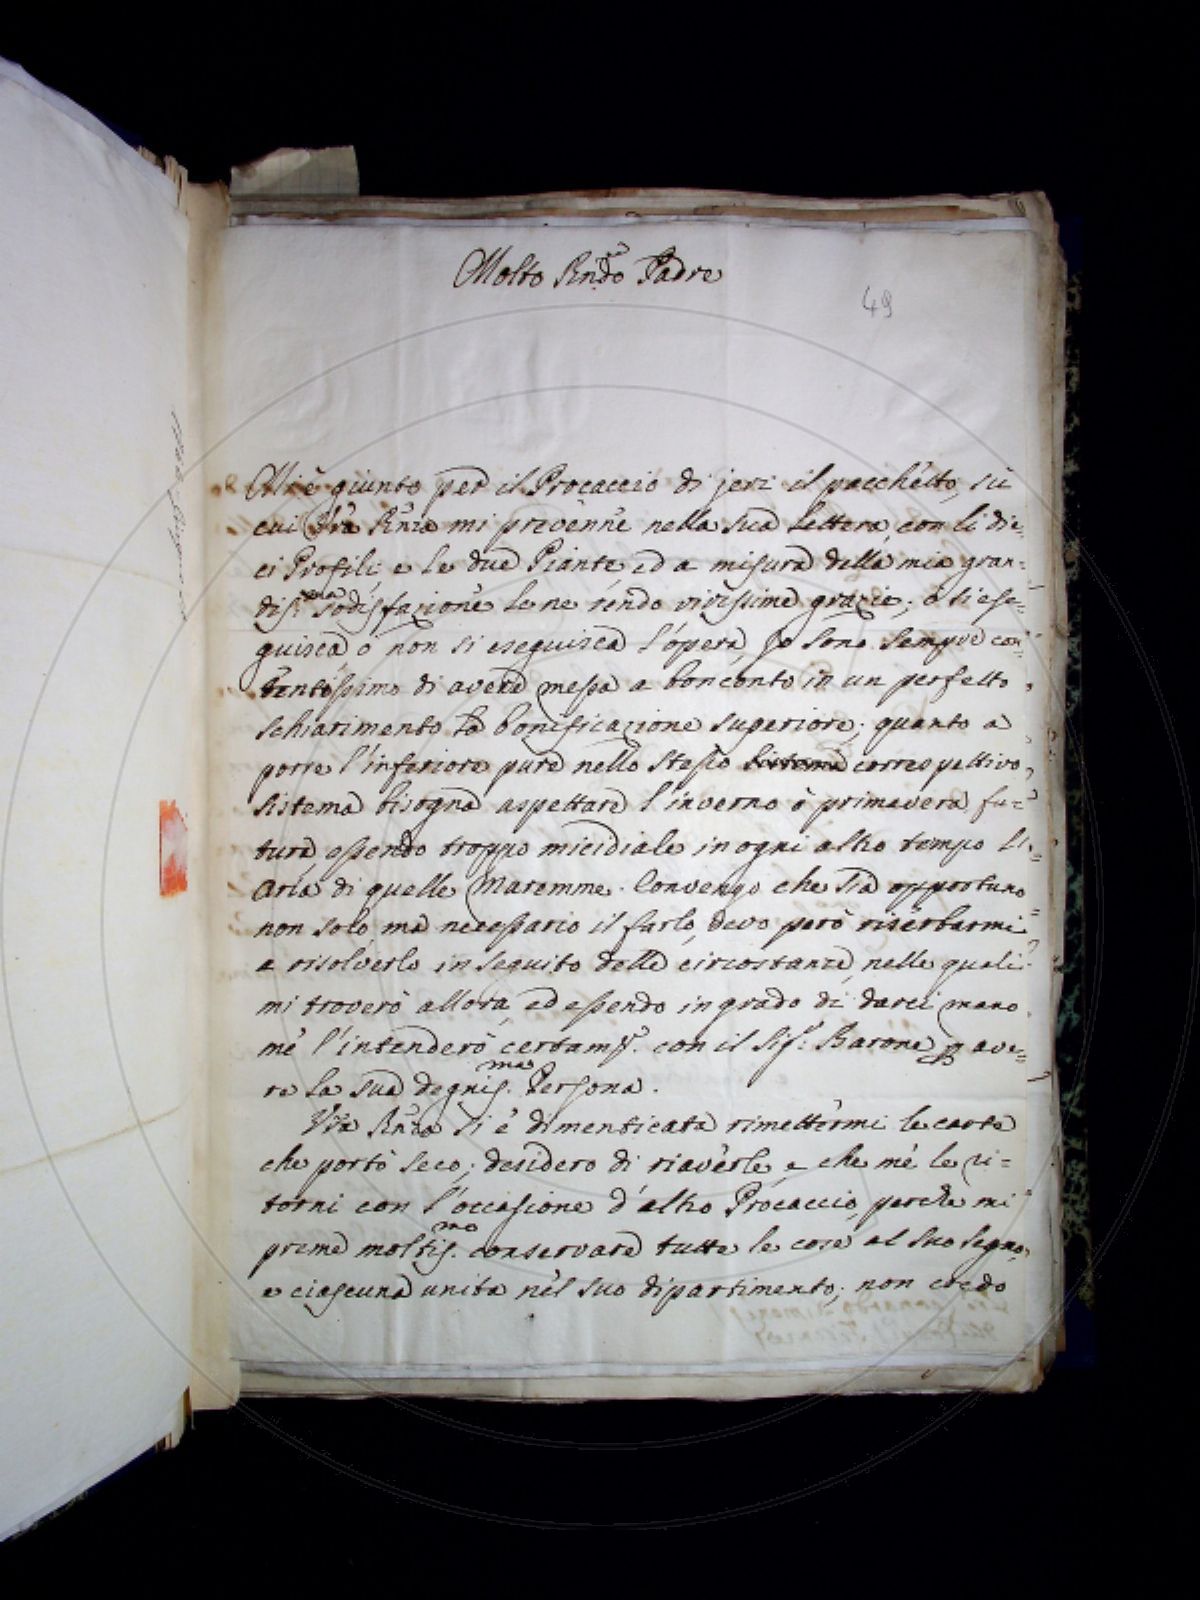 Molto Rndo Padre
49
Mi è giunto per il Procaccio di jeri il pacchetto, sù
cui Vra Rnza mi prevenne nella sua lettera, con li die=
ci Profili, e le due Piante, ed a misura della mia gran=
disma sodisfazione le ne rendo vivissime grazie; ò si ese=
guisca ò non si eseguisca l'opera, Io sono sempre con=
tentissimo di avere messa a bonconto in un perfetto
schiarimento la bonificazione superiore; quanto a
porre l'inferiore pure nello stesso correspettivo
sistema bisogna aspettare l'inverno ò primavera fu=
tura, essendo troppo micidiale in ogni altro tempo l'
Aria di quelle Maremme. Convengo che sia opportuno
non solo, ma necessario il farlo, devo però riserbarmi
a risolverlo in seguito delle circostanze, nelle quali
mi troverò allora, ed essendo in grado di darci mano
mè l'intenderò certamte. con il Sigr: Barone p ave=
re la sua degnisma. Persona.
Vra Rnza si è dimenticata rimettermi le carte
che portò seco; desidero di riaverle, e che mè le ri=
torni con l'occasione d'altro Procaccio, perche mi
preme moltismo. conservare tutte le cose al suo segno,
e ciascuna unita nel suo dipartimento; non credo